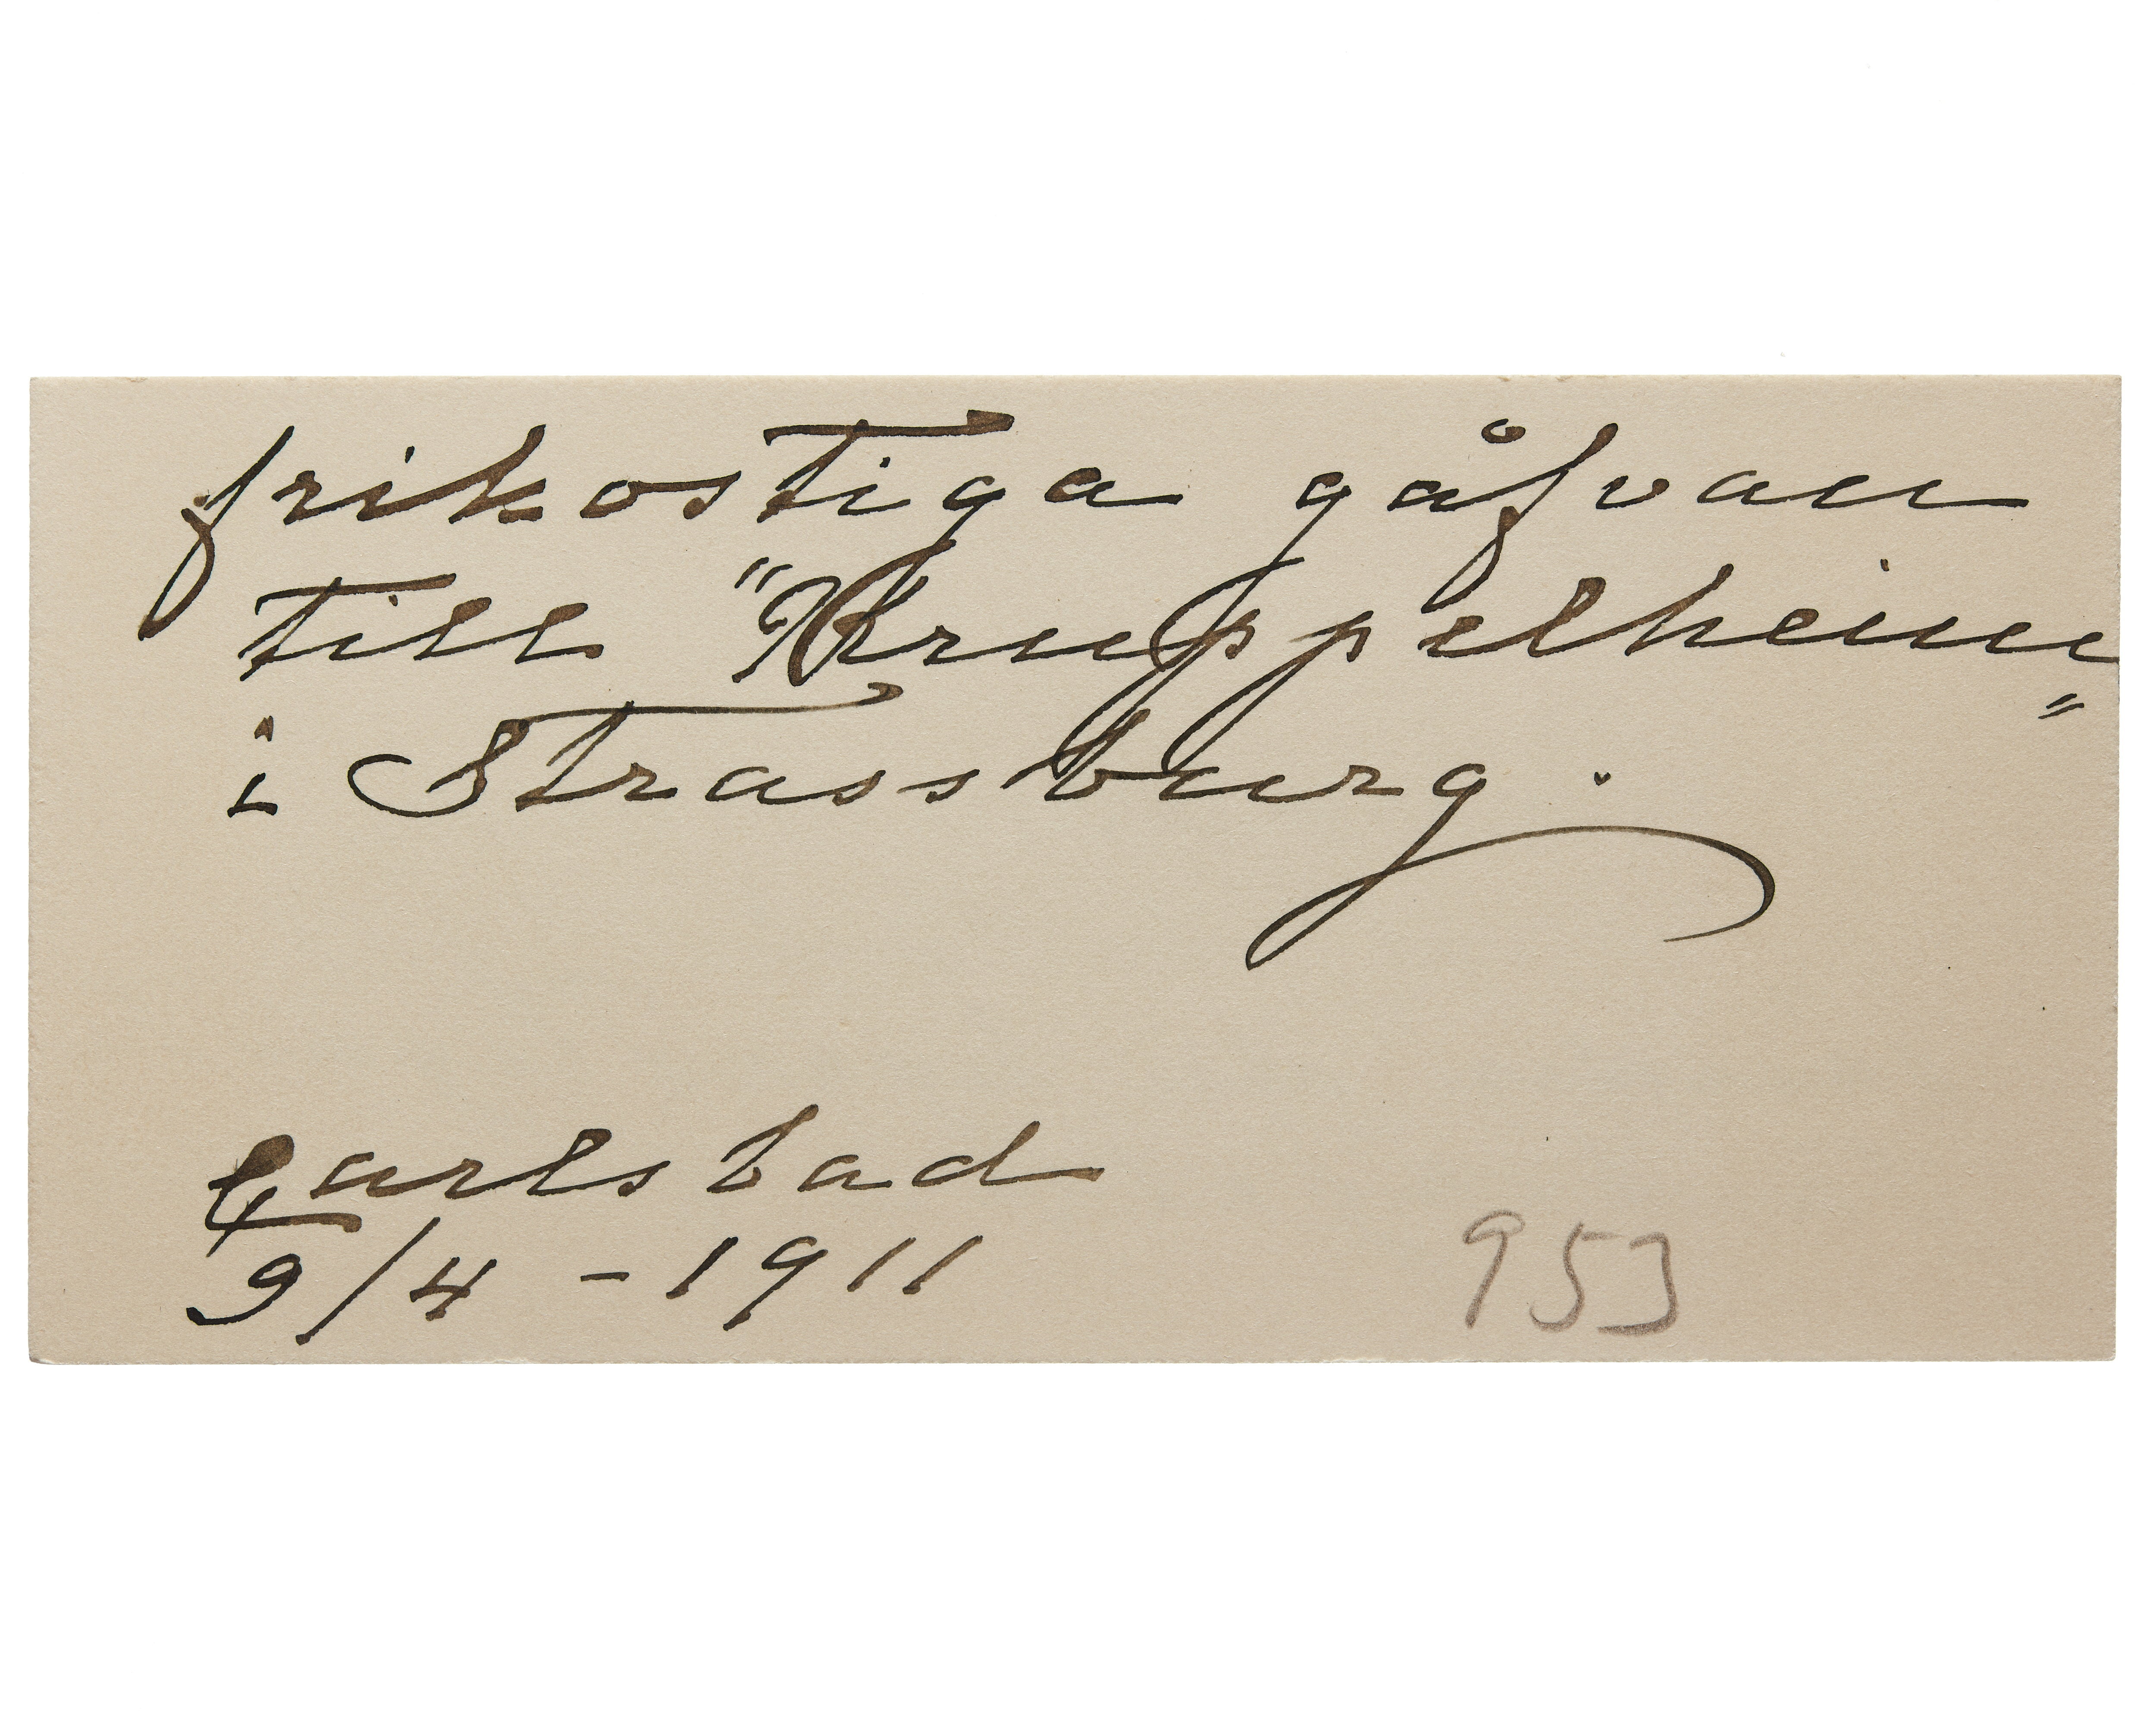 frikostiga gåfvan
till "Kruppelheim"
i Strassburg.
Carlsbad
9/4 - 1911
953